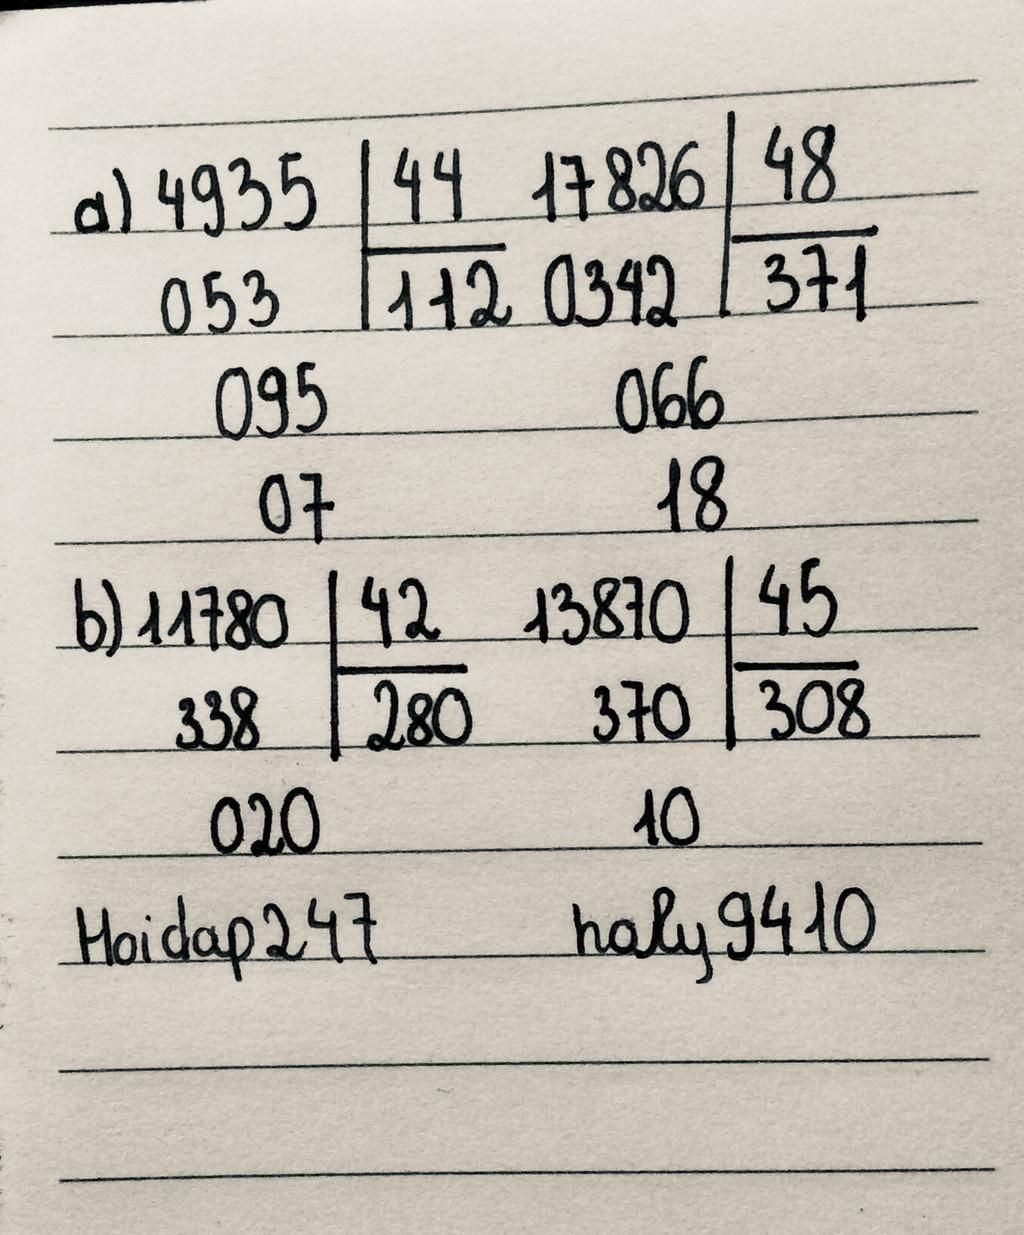 a) 4935 44 17826 48
053 112 0342 371
095 066
07 18
b) 11780 42 13870 45
338 280 370 308
020 10
Hoidap247 haly9410